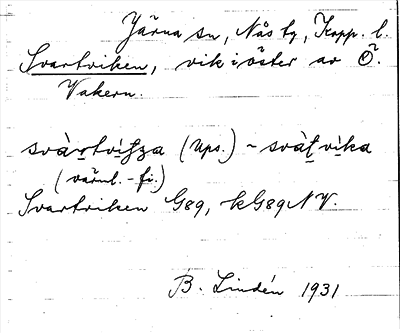 Järna sn, Nås tg, Kopp. l.
Svartviken, vik i öster av Ö.
Vakern.
svàrtvitza (Ups.) ~ svàtvika
(värml.-fi.)
Svartviken G89, kG89NV.
B. Lindén 1931